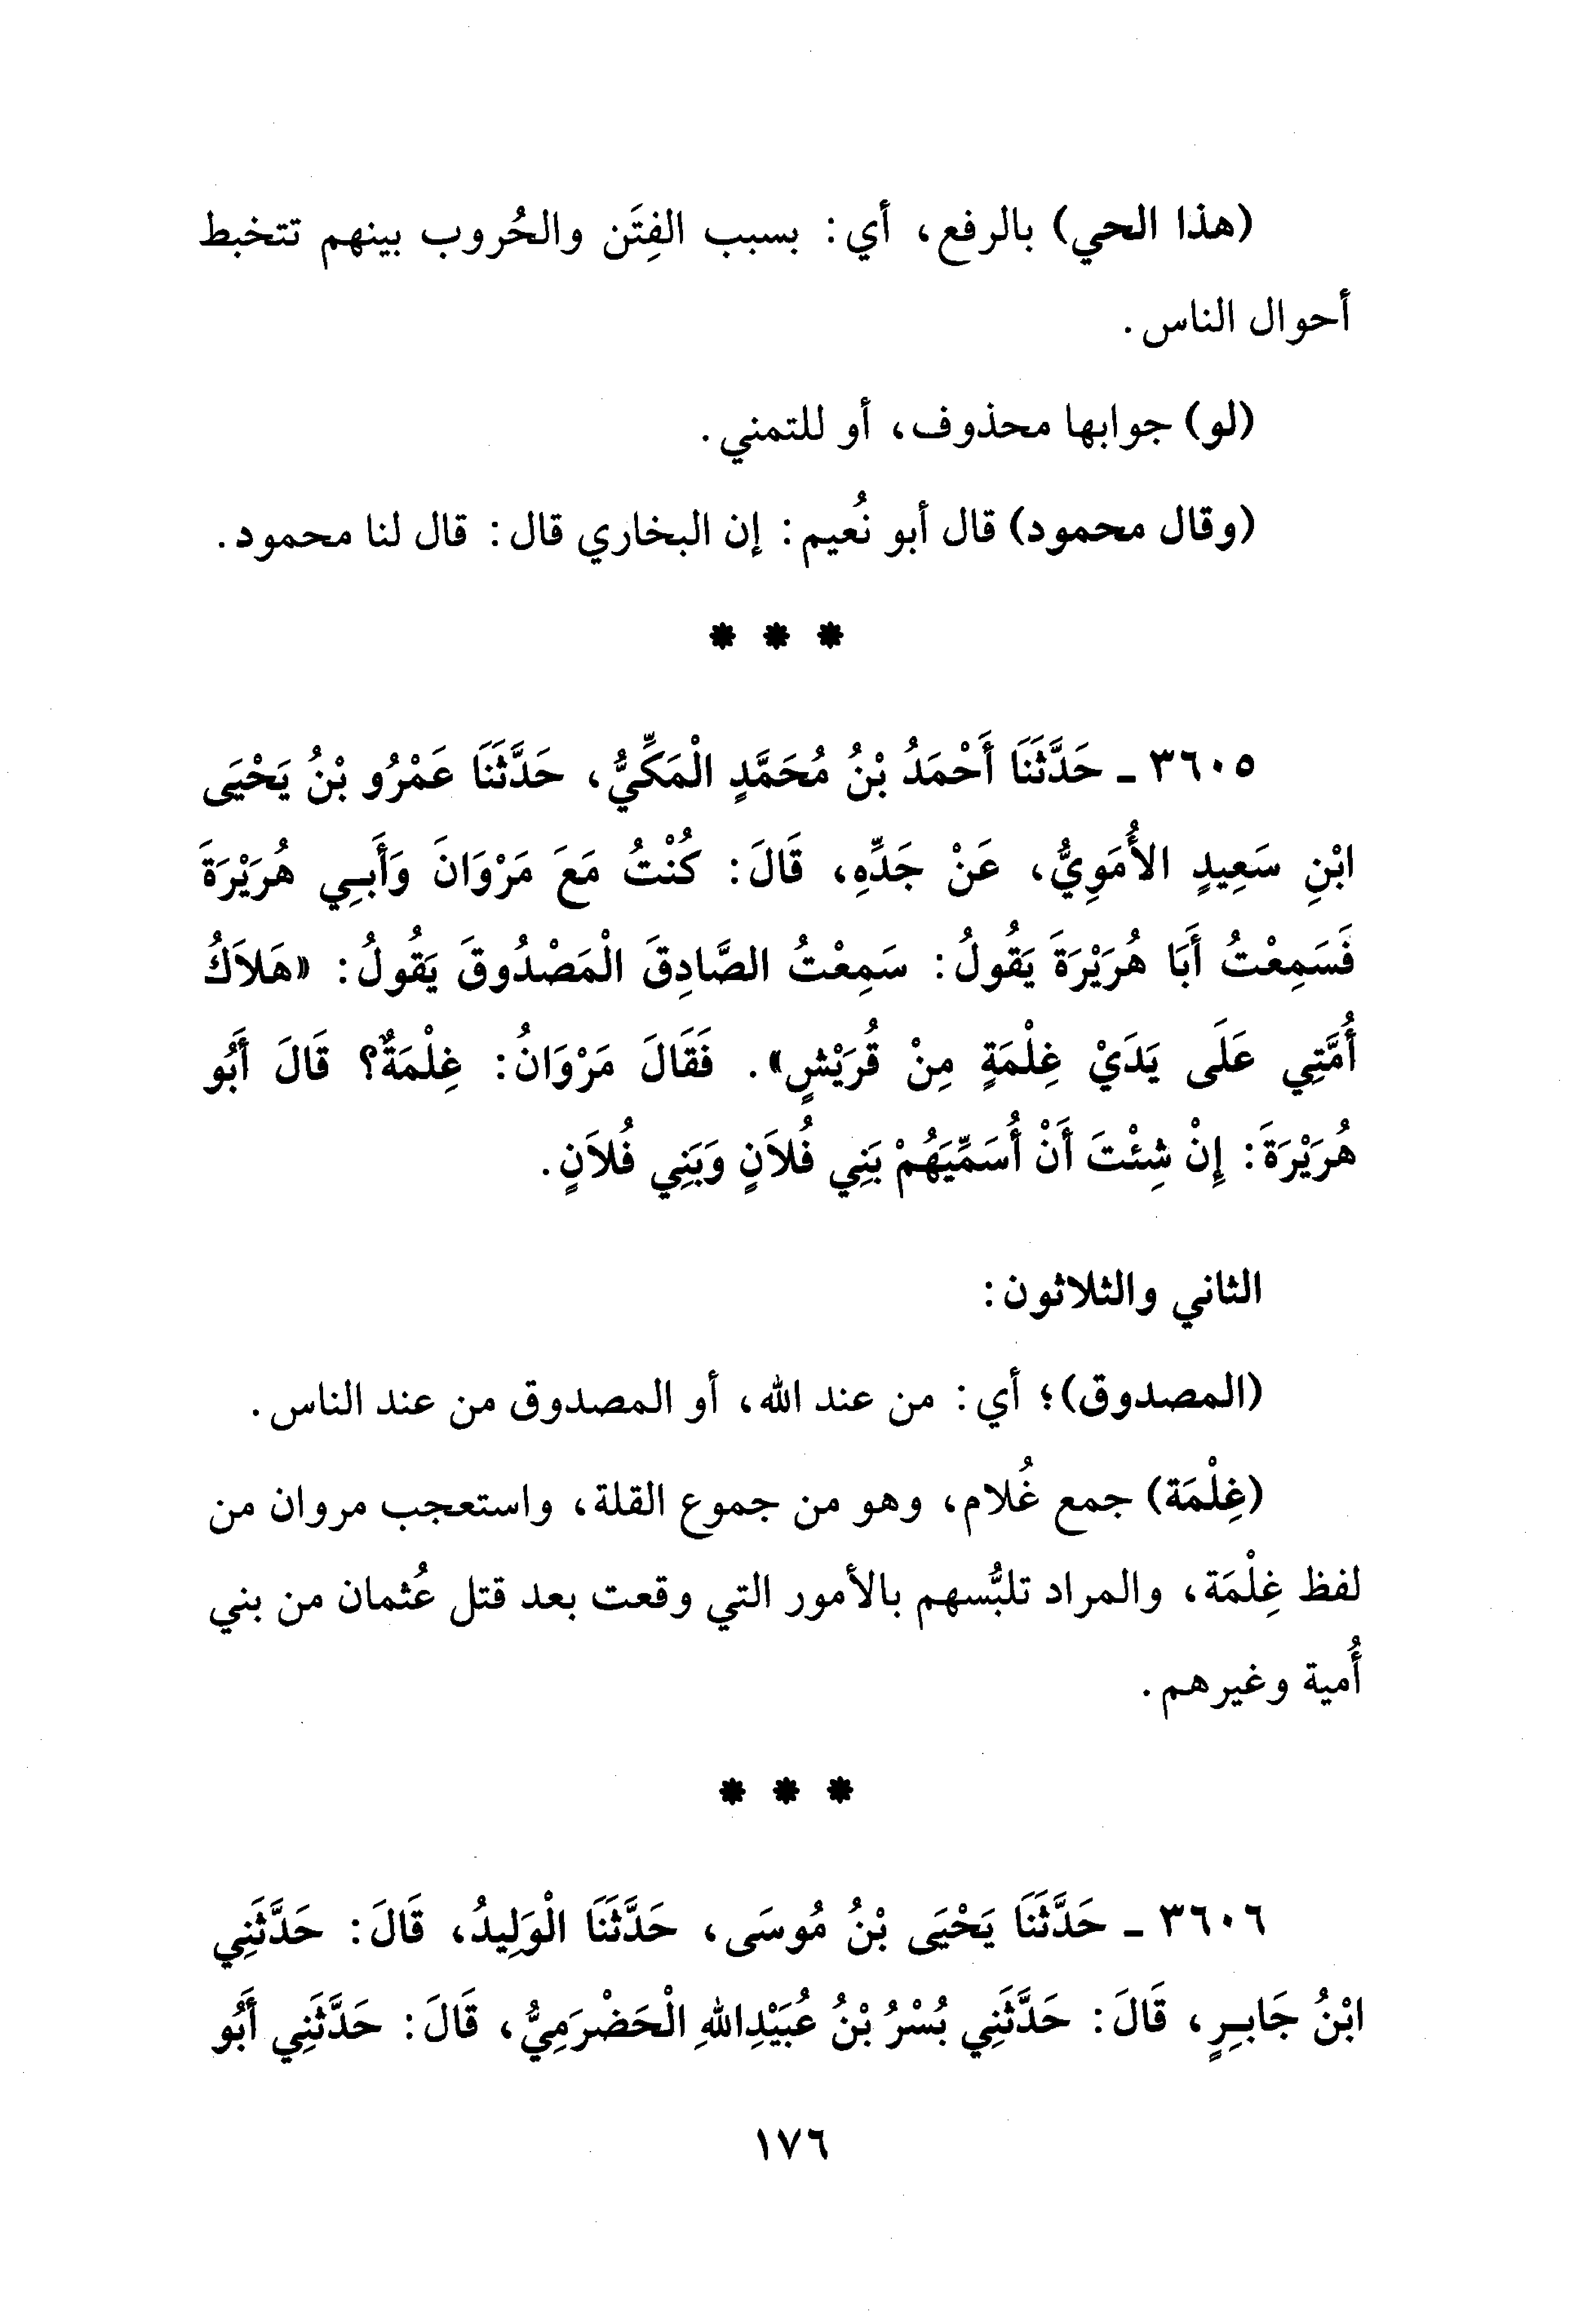 (هذا الحي) بالرفع، أي: بسبب الفِتَن والحُروب بينهم تتخبط
أحوال الناس.
(لو) جوابها محذوف، أو للتمني.
(وقال محمود) قال أبو نُعيم: إن البخاري قال: قال لنا محمود.
* * *
٣٦٠٥ ـ حَدَّثَنَا أَحْمَدُ بْنُ مُحَمَّدٍ الْمَكِّيُّ، حَدَّثَنَا عَمْرُو بْنُ يَحْيَى
ابْنِ سَعِيدٍ الأُمَوِيُّ، عَنْ جَدِّهِ، قَالَ: كُنْتُ مَعَ مَرْوَانَ وَأَبِي هُرَيْرَةَ
فَسَمِعْتُ أَبَا هُرَيْرَةَ يَقُولُ: سَمِعْتُ الصَّادِقَ الْمَصْدُوقَ يَقُولُ: «هَلاَكُ
أُمَّتِي عَلَى يَدَيْ غِلْمَةٍ مِنْ قُرَيْشٍ». فَقَالَ مَرْوَانُ: غِلْمَةٌ؟ قَالَ أَبُو
هُرَيْرَةَ: إِنْ شِئْتَ أَنْ أُسَمِّيَهُمْ بَنِي فُلاَنٍ وَبَنِي فُلاَنٍ.
الثاني والثلاثون:
(المصدوق)؛ أي: من عند الله، أو المصدوق من عند الناس.
(غِلْمَة) جمع غُلام، وهو من جموع القلة، واستعجب مروان من
لفظ غِلْمَة، والمراد تلبُّسهم بالأمور التي وقعت بعد قتل عُثمان من بني
أُمية وغيرهم.
* * *
٣٦٠٦ ـ حَدَّثَنَا يَحْيَى بْنُ مُوسَى، حَدَّثَنَا الْوَلِيدُ، قَالَ: حَدَّثَنِي
ابْنُ جَابِرٍ، قَالَ: حَدَّثَنِي بُسْرُ بْنُ عُبَيْدِاللهِ الْحَضْرَمِيُّ، قَالَ: حَدَّثَنِي أَبُو
١٧٦